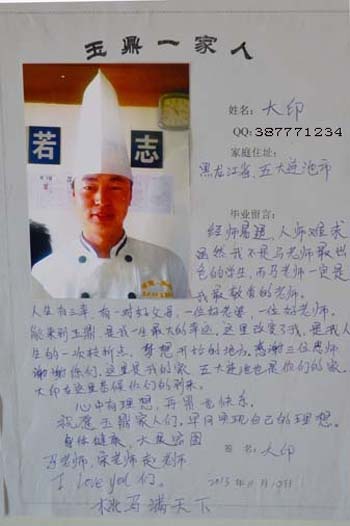 玉鼎一家人
姓名：大印
QQ: 387771234
家庭住址：
黑龙江省，五大连池市
若
志
毕业留言：
经师易遇，人师难求
虽然我不是马老师最出
色的学生，而马老师一定是
我最敬爱的老师。
人生有三幸，有一对好父母，一位好老婆，一位好老师。
能来到玉鼎，是我一生最大的幸运，这里改变了我，是我人
生的一次转折点，梦想开始的地方。感谢三位恩师
谢谢你们，这里是我的家 五大连池也是你们的家。
大印在这里恭候你们的到来。
心中有理想，再累也快乐。
祝愿玉鼎家人们，早日实现自己的理想。
身体健康，大展宏图
签名：大印
马老师，宋老师 赵老师
I love you 们。
2013年11月10日
桃李满天下